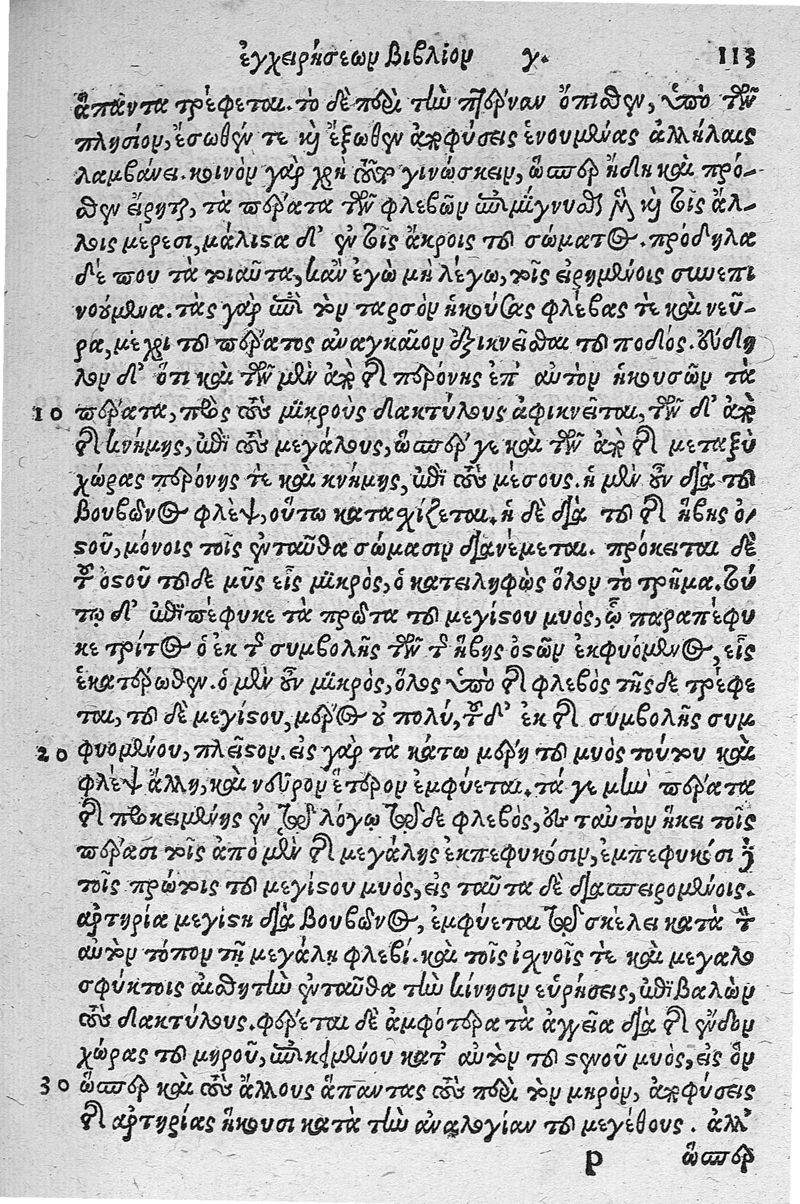 ἐγχειρήσεων βιβλίον γ. 113
ἅπαντα τρέφεται. τὸ δὲ περὶ τὴν πτέρναν ὄπισθεν, ὑπὸ τῶν
πλησίον, ἔσωθέν τε καὶ ἔξωθεν ἀποφύσεις ἑνουμένας ἀλλήλαις
λαμβάνει. κοινὸν γὰρ χρὴ τοῦτο γινώσκειν, ὥσπερ ἤδη καὶ πρό-
σθεν εἴρηται, τὰ πέρατα τῶν φλεβῶν ἐπιμίγνυσθαι κἀν τοῖς ἄλ-
λοις μέρεσι, μάλιστα δ' ἐν τοῖς ἄκροις τοῦ σώματος. πρόδηλα
δέ που τὰ τοιαῦτα, κἂν ἐγὼ μὴ λέγω, τοῖς εἰρημένοις συνεπι
νοούμενα. τὰς γὰρ ἐπὶ τὸν ταρσὸν ἡκούσας φλέβας τε καὶ νεῦ-
ρα, μέχρι τοῦ πέρατος ἀναγκαῖον ἐξικνεῖσθαι τοῦ ποδός. εὔδη
λον δ' ὅτι καὶ τῶν μὲν ἀπὸ τῆς περόνης ἐπ' αὐτὸν ἡκουσῶν τὰ
10 πέρατα, πρὸς τοὺς μικροὺς δακτύλους ἀφικνεῖται, τῶν δ' ἀπὸ
τῆς κνήμης, ἐπὶ τοὺς μεγάλους, ὥσπερ γε καὶ τῶν ἀπὸ τῆς μεταξὺ
χώρας περόνης τε καὶ κνήμης, ἐπὶ τοὺς μέσους. ἡ μὲν οὖν διὰ τοῦ
βουβῶνος φλὲψ, οὕτω κατασχίζεται. ἡ δὲ διὰ τοῦ τῆς ἥβης ὀ-
στοῦ, μόνοις τοῖς ἐνταῦθα σώμασιν διανέμεται. πρόκειται δὲ
τοῦ ὀστοῦ τοῦδε μῦς εἷς μικρὸς, ὁ κατειληφὼς ὅλον τὸ τρῆμα. τού
τῳ δ' ἐπιπέφυκε τὰ πρῶτα τοῦ μεγίστου μυὸς, ᾧ παραπέφυ
κε τρίτος ὁ ἐκ τῆς συμβολῆς τῶν τῆς ἥβης ὀστῶν ἐκφυόμενος, εἷς
ἑκατέρωθεν. ὁ μὲν οὖν μικρὸς, ὅλος ὑπὸ τῆς φλεβὸς τῆσδε τρέφε
ται, τοῦ δὲ μεγίστου, μέρος οὐ πολύ, τοῦ δ' ἐκ τῆς συμβολῆς συμ
20 φυομένου, πλεῖστον. εἰς γὰρ τὰ κάτω μέρη τοῦ μυὸς τούτου καὶ
φλὲψ ἄλλη, καὶ νεῦρον ἕτερον ἐμφύεται. τά γε μὴν πέρατα
τῆς προκειμένης ἐν τῷ λόγῳ τῷδε φλεβὸς, εἰς ταὐτὸν ἥκει τοῖς
πέρασι τοῖς ἀπὸ μὲν τῆς μεγάλης ἐκπεφυκόσιν, ἐμπεφυκόσι δὲ
τοῖς πρώτοις τοῦ μεγίστου μυὸς, εἰς ταῦτα δὲ διασπειρομένοις.
ἀρτηρία μεγίστη διὰ βουβῶνος, ἐμφύεται τῷ σκέλει κατὰ τὸν
αὐτὸν τόπον τῇ μεγάλῃ φλεβί. καὶ τοῖς ἰσχνοῖς τε καὶ μεγαλο
σφύκτοις αἰσθητὴν ἐνταῦθα τὴν κίνησιν εὑρήσεις, ἐπιβαλὼν
τοὺς δακτύλους. φέρεται δὲ ἀμφότερα τὰ ἀγγεῖα διὰ τῆς ἔνδον
χώρας τοῦ μηροῦ, ἐπικειμένου κατ' αὐτὸν τοῦ στενοῦ μυὸς, εἰς ὃν
30 ὥσπερ καὶ τοὺς ἄλλους ἅπαντας τοὺς περὶ τὸν μηρὸν, ἀποφύσεις
τῆς ἀρτηρίας ἥκουσι κατὰ τὴν ἀναλογίαν τοῦ μεγέθους. ἀλλ'
p ὥσπερ